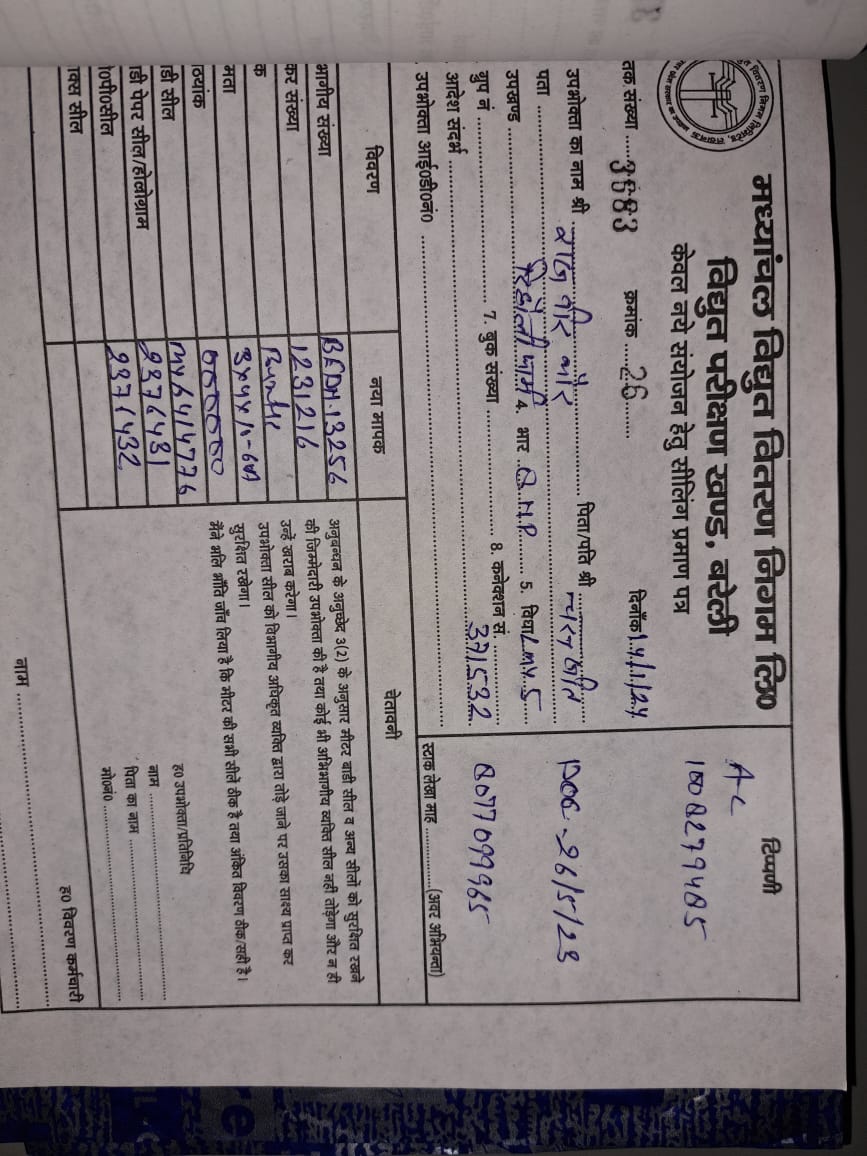 मध्यांचल विद्युत वितरण निगम लि0
विद्युत परीक्षण खण्ड, बरेली
केवल नये संयोजन हेतु सीलिंग प्रमाण पत्र
तक संख्या ....3683 क्रमांक ....26...... दिनाँक 14/11/24
उपभोक्ता का नाम श्री पिता/पति श्री
पता
उपखण्ड 4. भार ..8.H.P....... 5. विधा LMV.5....
ग्रुप नं 7. बुक संख्या 8. कनेक्शन सं.
आदेश संदर्भ 371532
उपभोक्ता आई0डी0नं0
टिप्पणी
A-C
DOC - 26/5/23
8077099965
स्टाक लेखा माह ..............(अवर अभियन्ता)
विवरण नया मापक चेतावनी
भागीय संख्या BEDM.13256
कर संख्या 1231216
क
मता
ठयांक
डी सील
डी पेपर सील/होलोग्राम 2376431
0पी0सील 2376432
ाक्स सील
अनुबन्धन के अनुच्छेद 3(2) के अनुसार मीटर बाडी सील व अन्य सीलों को सुरक्षित रखने
की जिम्मेदारी उपभोक्ता की है तथा कोई भी अभिभागीय व्यक्ति सील नहीं तोड़ेगा और न ही
उन्हें खराब करेगा।
उपभोक्ता सील को विभागीय अधिकृत व्यक्ति द्वारा तोड़े जाने पर उसका साक्ष्य प्राप्त कर
सुरक्षित रखेगा।
मैंने भलि भाँति जाँच लिया है कि मीटर की सभी सीलें ठीक है तथा अंकित विवरण ठीक/सही है।
ह0 उपभोक्ता/प्रतिनिधि
नाम
पिता का नाम
मो0नं0
ह0 विवरण कर्मचारी
नाम